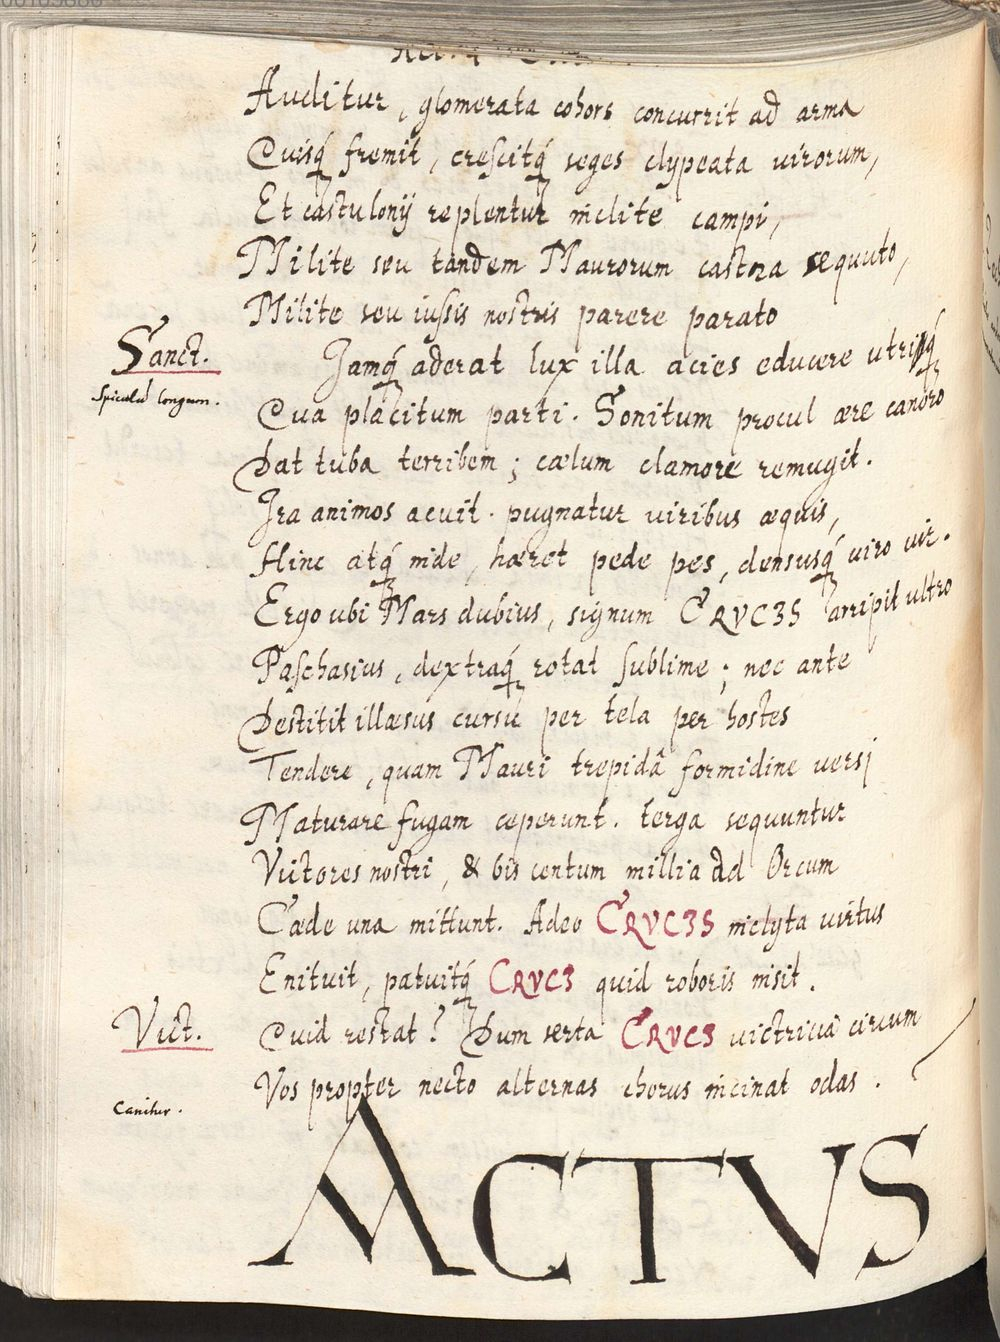 Auditur, glomerata cohors concurrit ad arma
Cuisq́ fremit, crescitq́ seges clypeata virorum,
Et castulonij replentur inclite campi,
Milite seu tandem Maurorum castra sequuto,
Milite seu iussis nostris parere parato
Sanct. Jamq́ aderat lux illa acies educere utriq́
Spiculũ longum. Qua placitum parti. Sonitum procul ære canoro
Dat tuba terribem; cælum clamore remugit.
Ira animos acuit. pugnatur viribus æquis,
Hinc atq́ inde, hæret pede pes, densusq́ viro vir.
Ergo ubi Mars dubius, signum CRVCIS arripit ultro
Paschasius, dextraq́ rotat sublime; nec ante
Destitit illæsus cursu per tela per hostes
Tendere, quam Mauri trepidâ formidine versi
Maturare fugam ceperunt. terga sequuntur
Victores nostri, & bis centum millia ad Orcum
Cæde una mittunt. Adeo CRVCIS inclyta virtus
Enituit, patuitq́ CRVCI quid roboris insit.
Vict. Quid restat? Dum serta CRVCI victricia circum
Vos propter necto alternas chorus incinat odas.
Canitur.
ACTVS